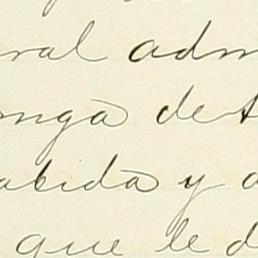 ral adm
nga de t
abida y a
que le d